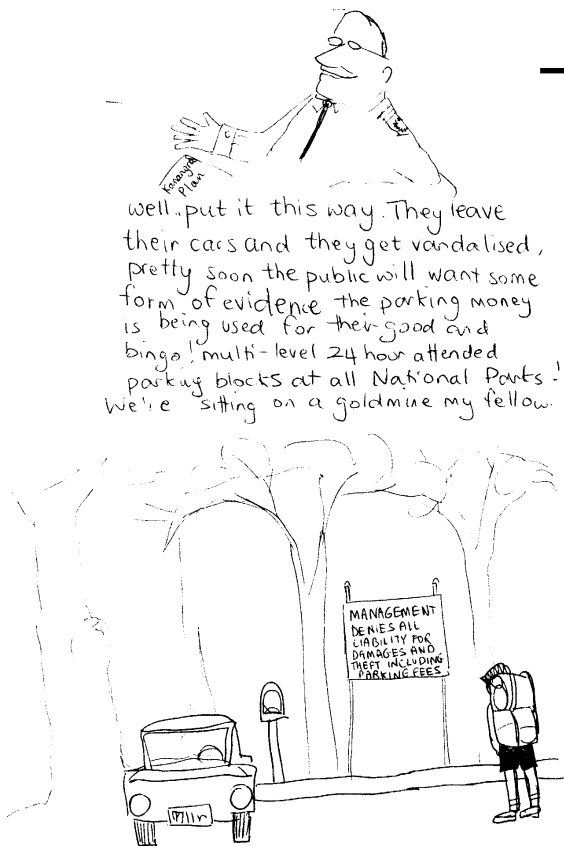 Kanangra
Plan
well..put it this way. They leave
their cars and they get vandalised,
pretty soon the public will want some
form of evidence the parking money
is being used for their good and
bingo! multi-level 24 hour attended
parking blocks at all National Parks!
We're sitting on a goldmine my fellow.
MANAGEMENT
DENIES ALL
LIABILITY FOR
DAMAGES AND
THEFT INCLUDING
PARKING FEES